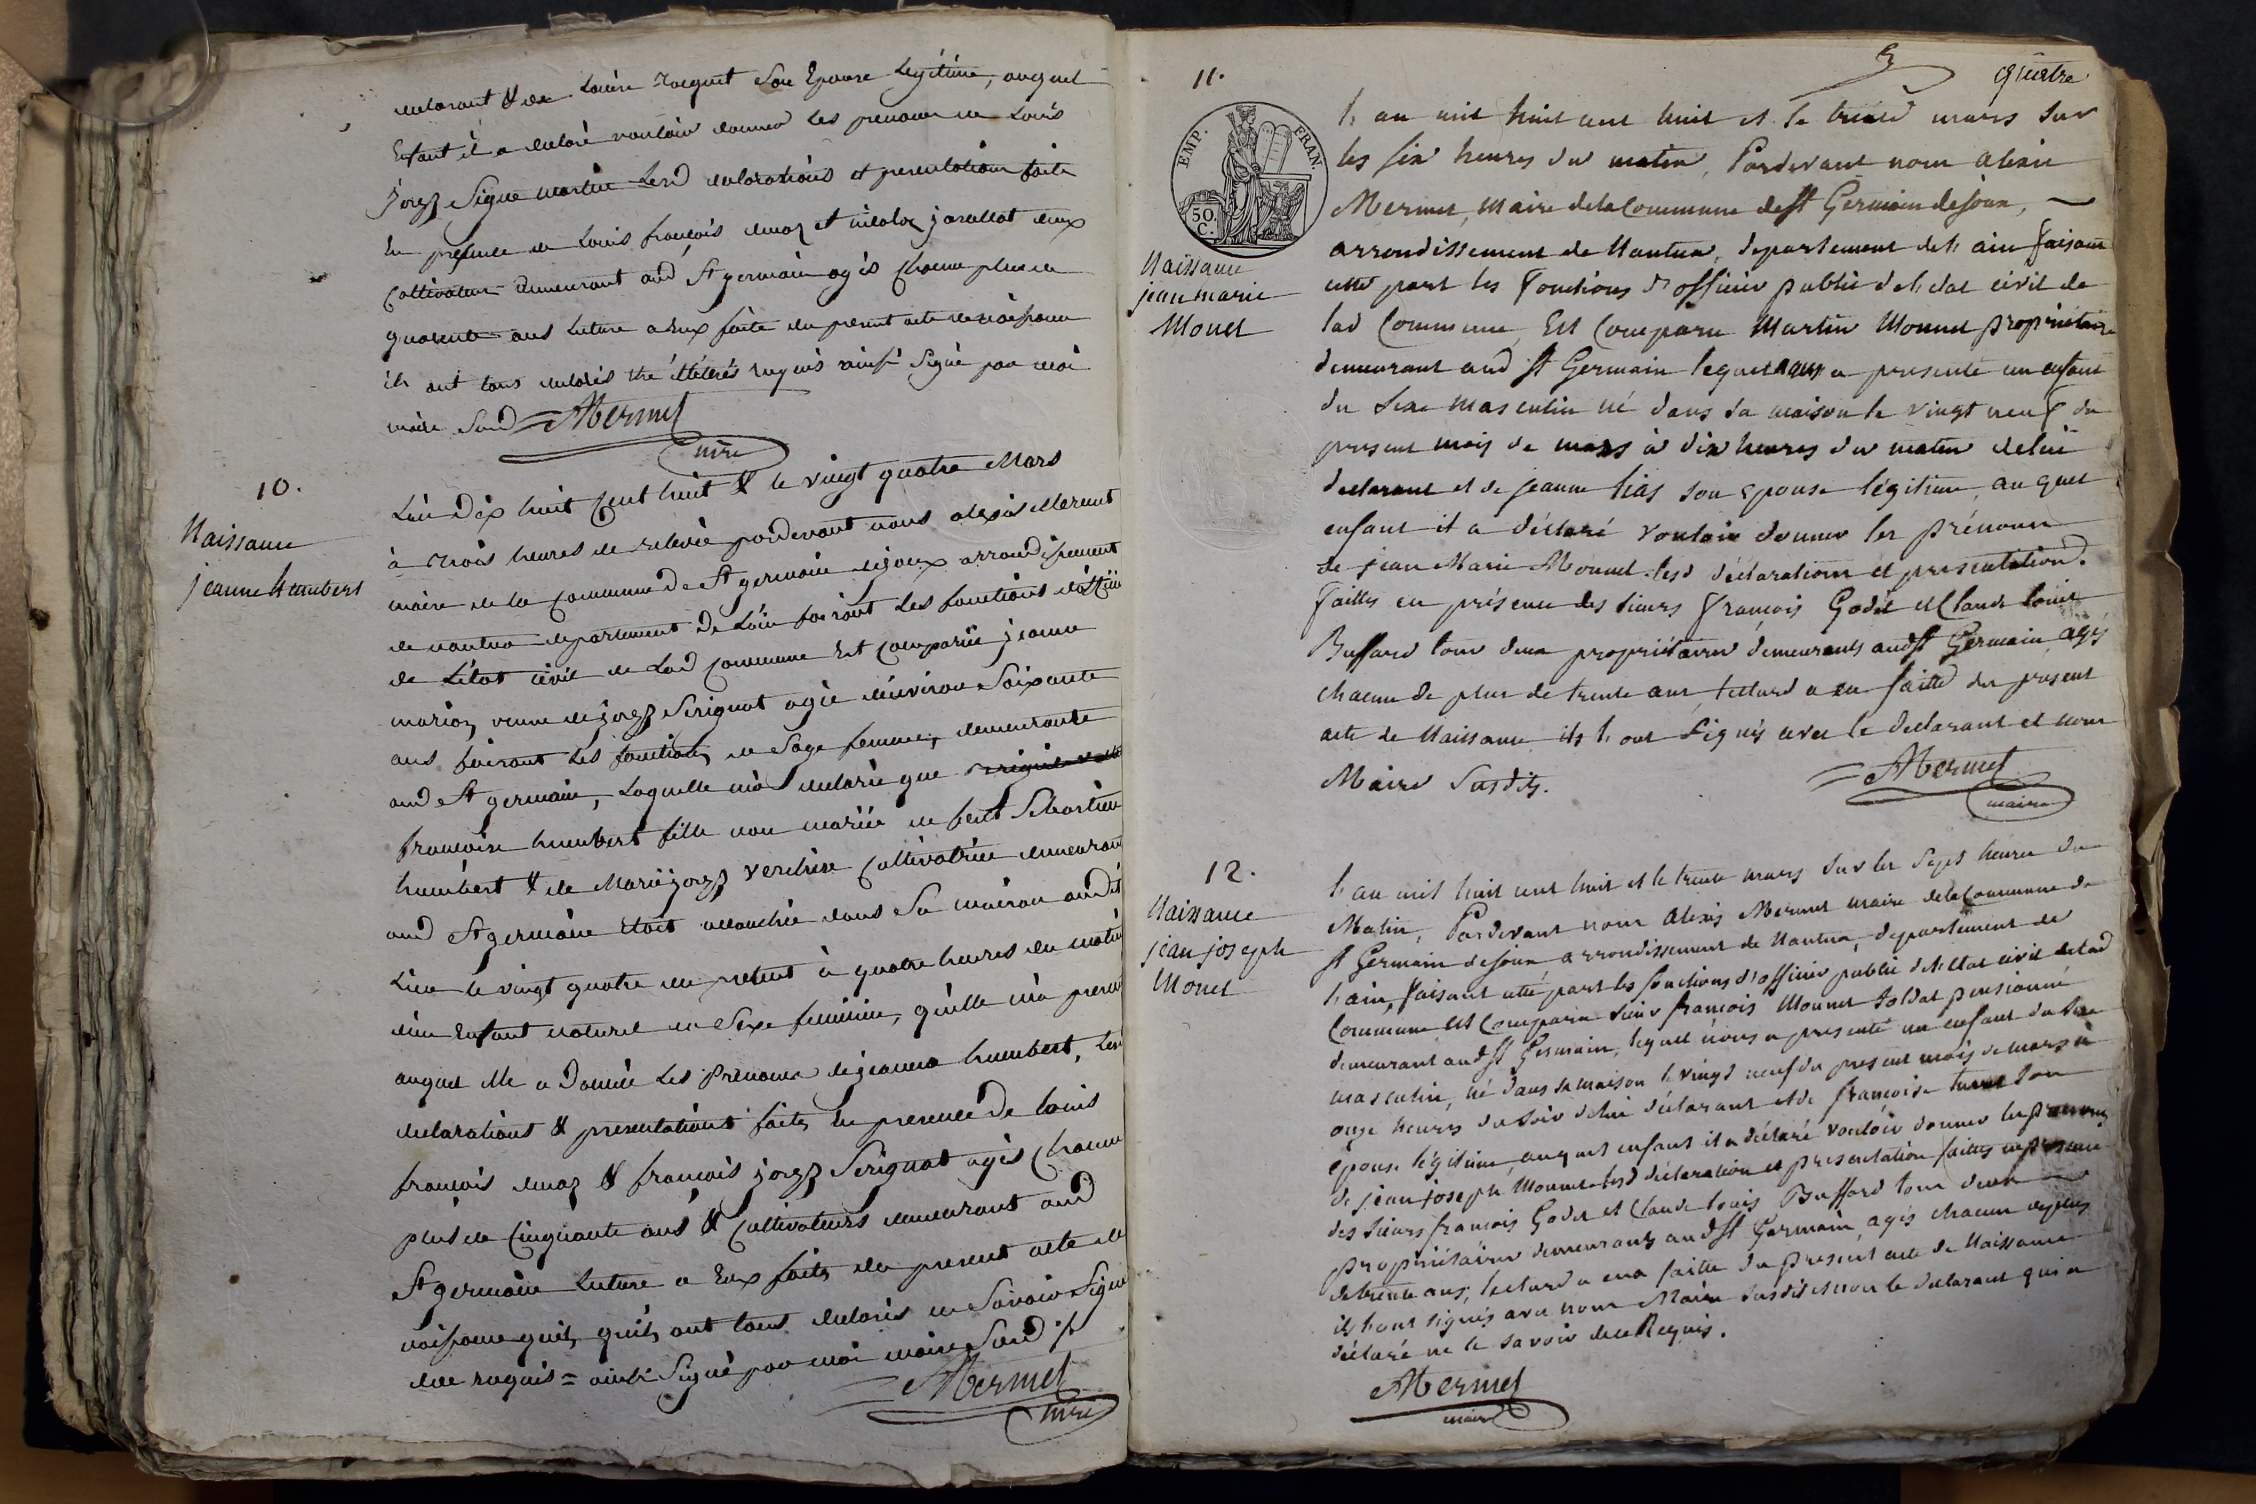 declarant & de Louise Jacquet Son Epouse Legitime, auquel
Enfant il a declaré vouloir donner les prenoms de Louis
Signe Martin Lesd declarations et presentation faite
En presence de Louis françois et nicolas javallat deux
Cultivateurs demeurant aud St germain agés Chacun plus de
quarente ans Lecture a Eux faite du present acte de naissance
ils ont tous declarés être illitérés requis ainsi Signé par moi
maire Susd = AMermet
mre
10.
Naissance
jeanne humbert
L'an Dix huit Cent huit & le vingt quatre Mars
à trois heures de relevée pardevant nous alexis Mermet
maire de la Commune de St germain dejoux arrondissement
de nantua departement De L'ain faisant les fonctions
de L'état civil de Lad Commune Est Comparüe jeanne
mariaz veuve de Serignat agée d'environ Soixante
ans faisant les fonctions de Sage femme, demeurante
aud St germain, Laquelle m'a declarée que
françoise humbert fille non mariée de feut Sebastien
humbert & de Marie Cultivatrice demeurant
aud St germain Etoit accouchée dans Sa maison audit
Lieu le vingt quatre du present à quatre heures du matin
d'un Enfant naturel du Sexe feminin, qu'elle m'a presen
auquel Elle a Donnée Les Prenoms de jeanne humbert, Les
declarations & presentations faites En presence De Louis
françois & françois Serignat agés Chacun
plus de Cinquante ans & Cultivateurs demeurant aud
St germain Lecture a Eux faite du present acte de
naissance qu'ils, qu'ils ont tous declarés ne Savoir Signer
de requis = ainsi Signé par moi maire Susd
AMermet
mre
quatre
11.
EMP. FRAN.
50. C.
Naissance
jean marie
Monet
L'an mil huit cent huit et le trente mars Sur
les Six heures du matin, Pardevant nous alexis
Mermet, Maire de la Commune de St Germain de Joux,
arrondissement de Nantua, departement de l'ain faisant
cette part les fonctions d'officier public de l'etat civil de
lad Commune, Est Comparu Martin Monnet propriétaire
demeurant aud St Germain lequel nous a presenté un enfant
du Sexe Masculin né dans sa maison le vingt neuf du
present mois de mars à dix heures du matin de lui
declarant et de jeanne son epouse légitime, au quel
enfant il a déclaré vouloir donner les prénoms
de jean Marie Monnet. lesd déclarations et presentation.
faittes en présence des Sieurs françois Godet et Claude louis
Buffard tous deux propriétaires demeurants aud St Germain, agés
chacun de plus de trente ans, lecture a eux faitte du present
acte de Naissance ils l'ont Signés avec le declarant et nous
Maire Susdits.
AMermet
maire
12.
Naissance
jean joseph
Monet
L'an mil huit cent huit et le trente mars Sur les Sept heures du
Matin, Pardevant nous Alexis Mermet maire de la Commune de
St Germain de Joux arrondissement de Nantua, departement de
l'ain, faisant cette part les fonctions d'officier public de l'Etat civil de lad
Commune est Comparu Sieur françois Monnet Soldat pensionné
demeurant aud St Germain, lequel nous a presenté un enfant du Sexe
masculin, né dans sa maison le vingt neuf du present mois de mars à
onze heures du Soir de lui déclarant et de françoise Son
épouse légitime, auquel enfant il a déclaré vouloir donner les prenoms
de jean joseph Monnet lesd déclaration et presentation faittes en presence
des Sieurs françois Godet et Claude louis Buffard tous deux
propriétaires demeurants aud St Germain, agés chacun de plus
de trente ans, lecture a eux faitte du present acte de Naissance
ils l'ont signés avec nous Maire susdit et non le declarant qui a
déclaré ne le savoir de ce Requis.
AMermet
maire